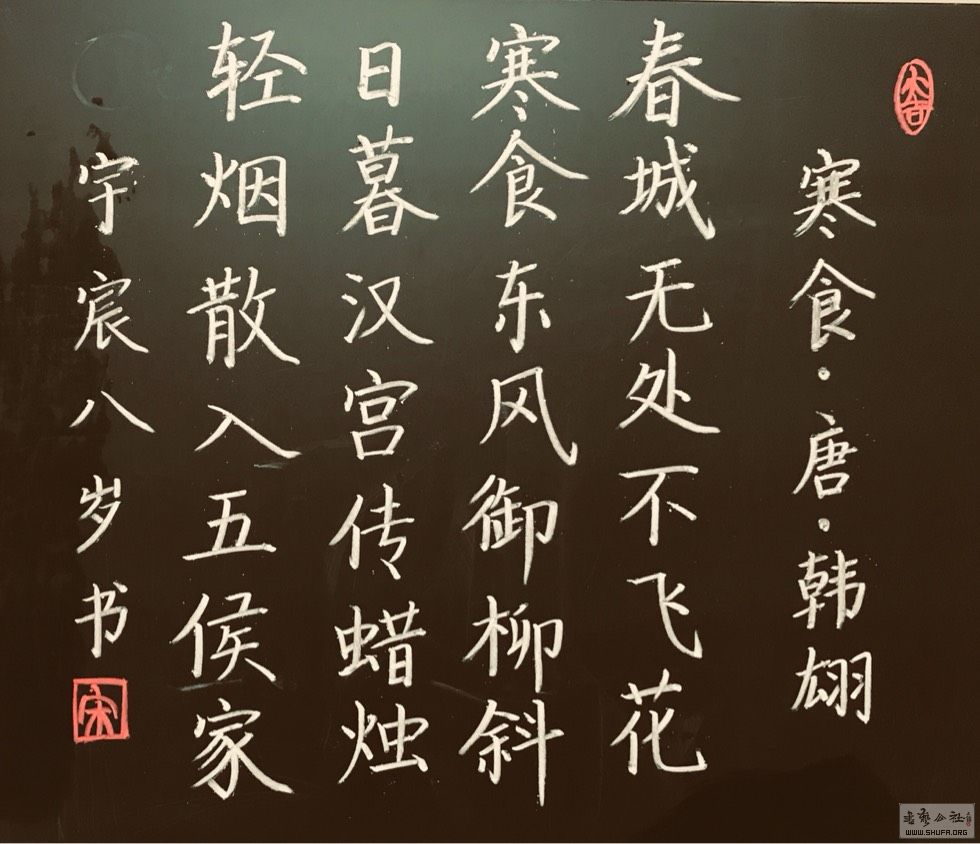 寒食·唐·韩翃
春城无处不飞花
寒食东风御柳斜
日暮汉宫传蜡烛
轻烟散入五侯家
宇宸八岁书
宋
WWW.SHUFA.ORG